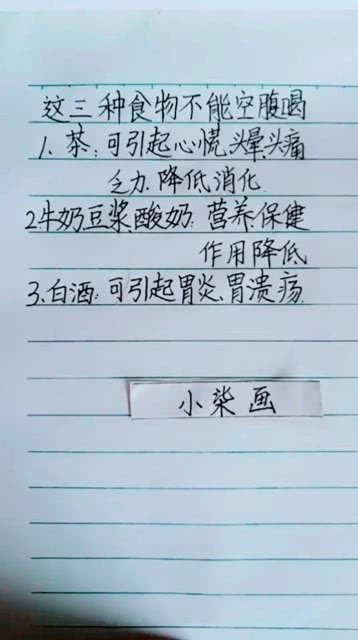 这三种食物不能空腹喝
1、茶:可引起心慌、头晕、头痛
乏力、降低消化
2、牛奶、豆浆、酸奶:营养、保健
作用降低
3、白酒:可引起胃炎、胃溃疡
小柒画